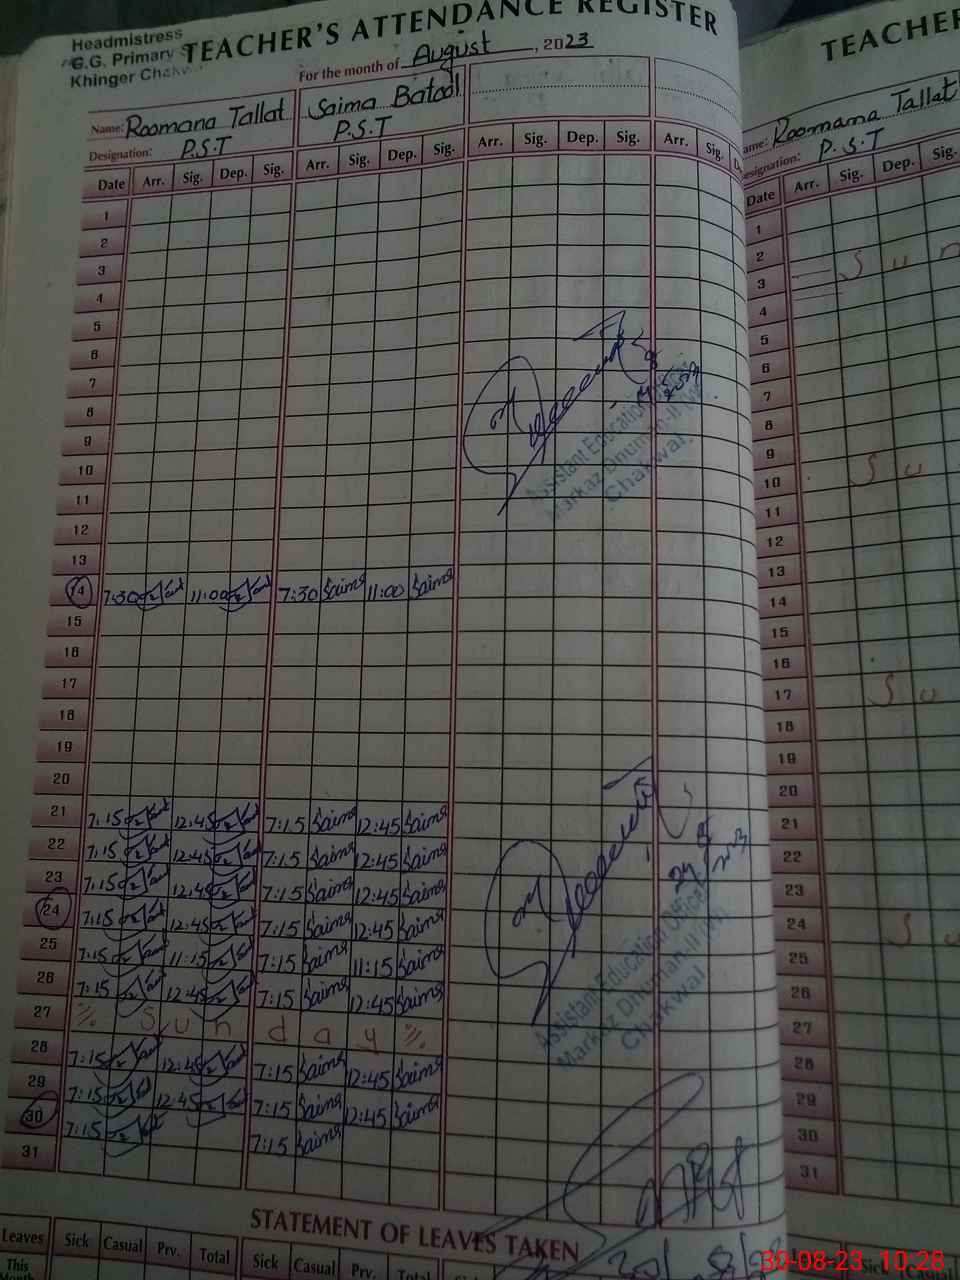 Headmistress
G.G. Primary
Khinger Chakwal
TEACHER'S ATTENDANCE REGISTER
For the month of August, 2023
Name: Roomana Tallat Saima Batool
Designation: P.S.T P.S.T
Date Arr. Sig. Dep. Sig. Arr. Sig. Dep. Sig. Arr. Sig. Dep. Sig. Arr. Sig.
1
2
3
4
5
6
7
8
9
10
11
12
13
14 7:30 11:00 7:30 Saima 11:00 Saima
15
16
17
18
19
20
21 7:15 12:45 7:15 Saima 12:45 Saima
22 7:15 12:45 7:15 Saima 12:45 Saima
23 7:15 12:45 7:15 Saima 12:45 Saima
24 7:15 12:45 7:15 Saima 12:45 Saima
25 7:15 11:15 7:15 Saima 11:15 Saima
26 7:15 12:45 7:15 Saima 12:45 Saima
27 Sunday
28 7:15 12:45 7:15 Saima 12:45 Saima
29 7:15 12:45 7:15 Saima 12:45 Saima
30 7:15 7:15 Saima
31
Assistant Education Officer
Markaz Dhuman-II
Chakwal.
Assistant Education Officer
Markaz Dhuman-II
Chakwal.
STATEMENT OF LEAVES TAKEN
Leaves Sick Casual Prv. Total Sick Casual Prv. Total
This
Month
TEACHER
Name: Roomana Tallat
Designation: P.S.T
Date Arr. Sig. Dep. Sig.
1
2
3 Sun
4
5
6
7
8
9
10 Su
11
12
13
14
15
16
17 Su
18
19
20
21
22
23
24 Su
25
26
27
28
29
30
31
Sick
30-08-23 10:28